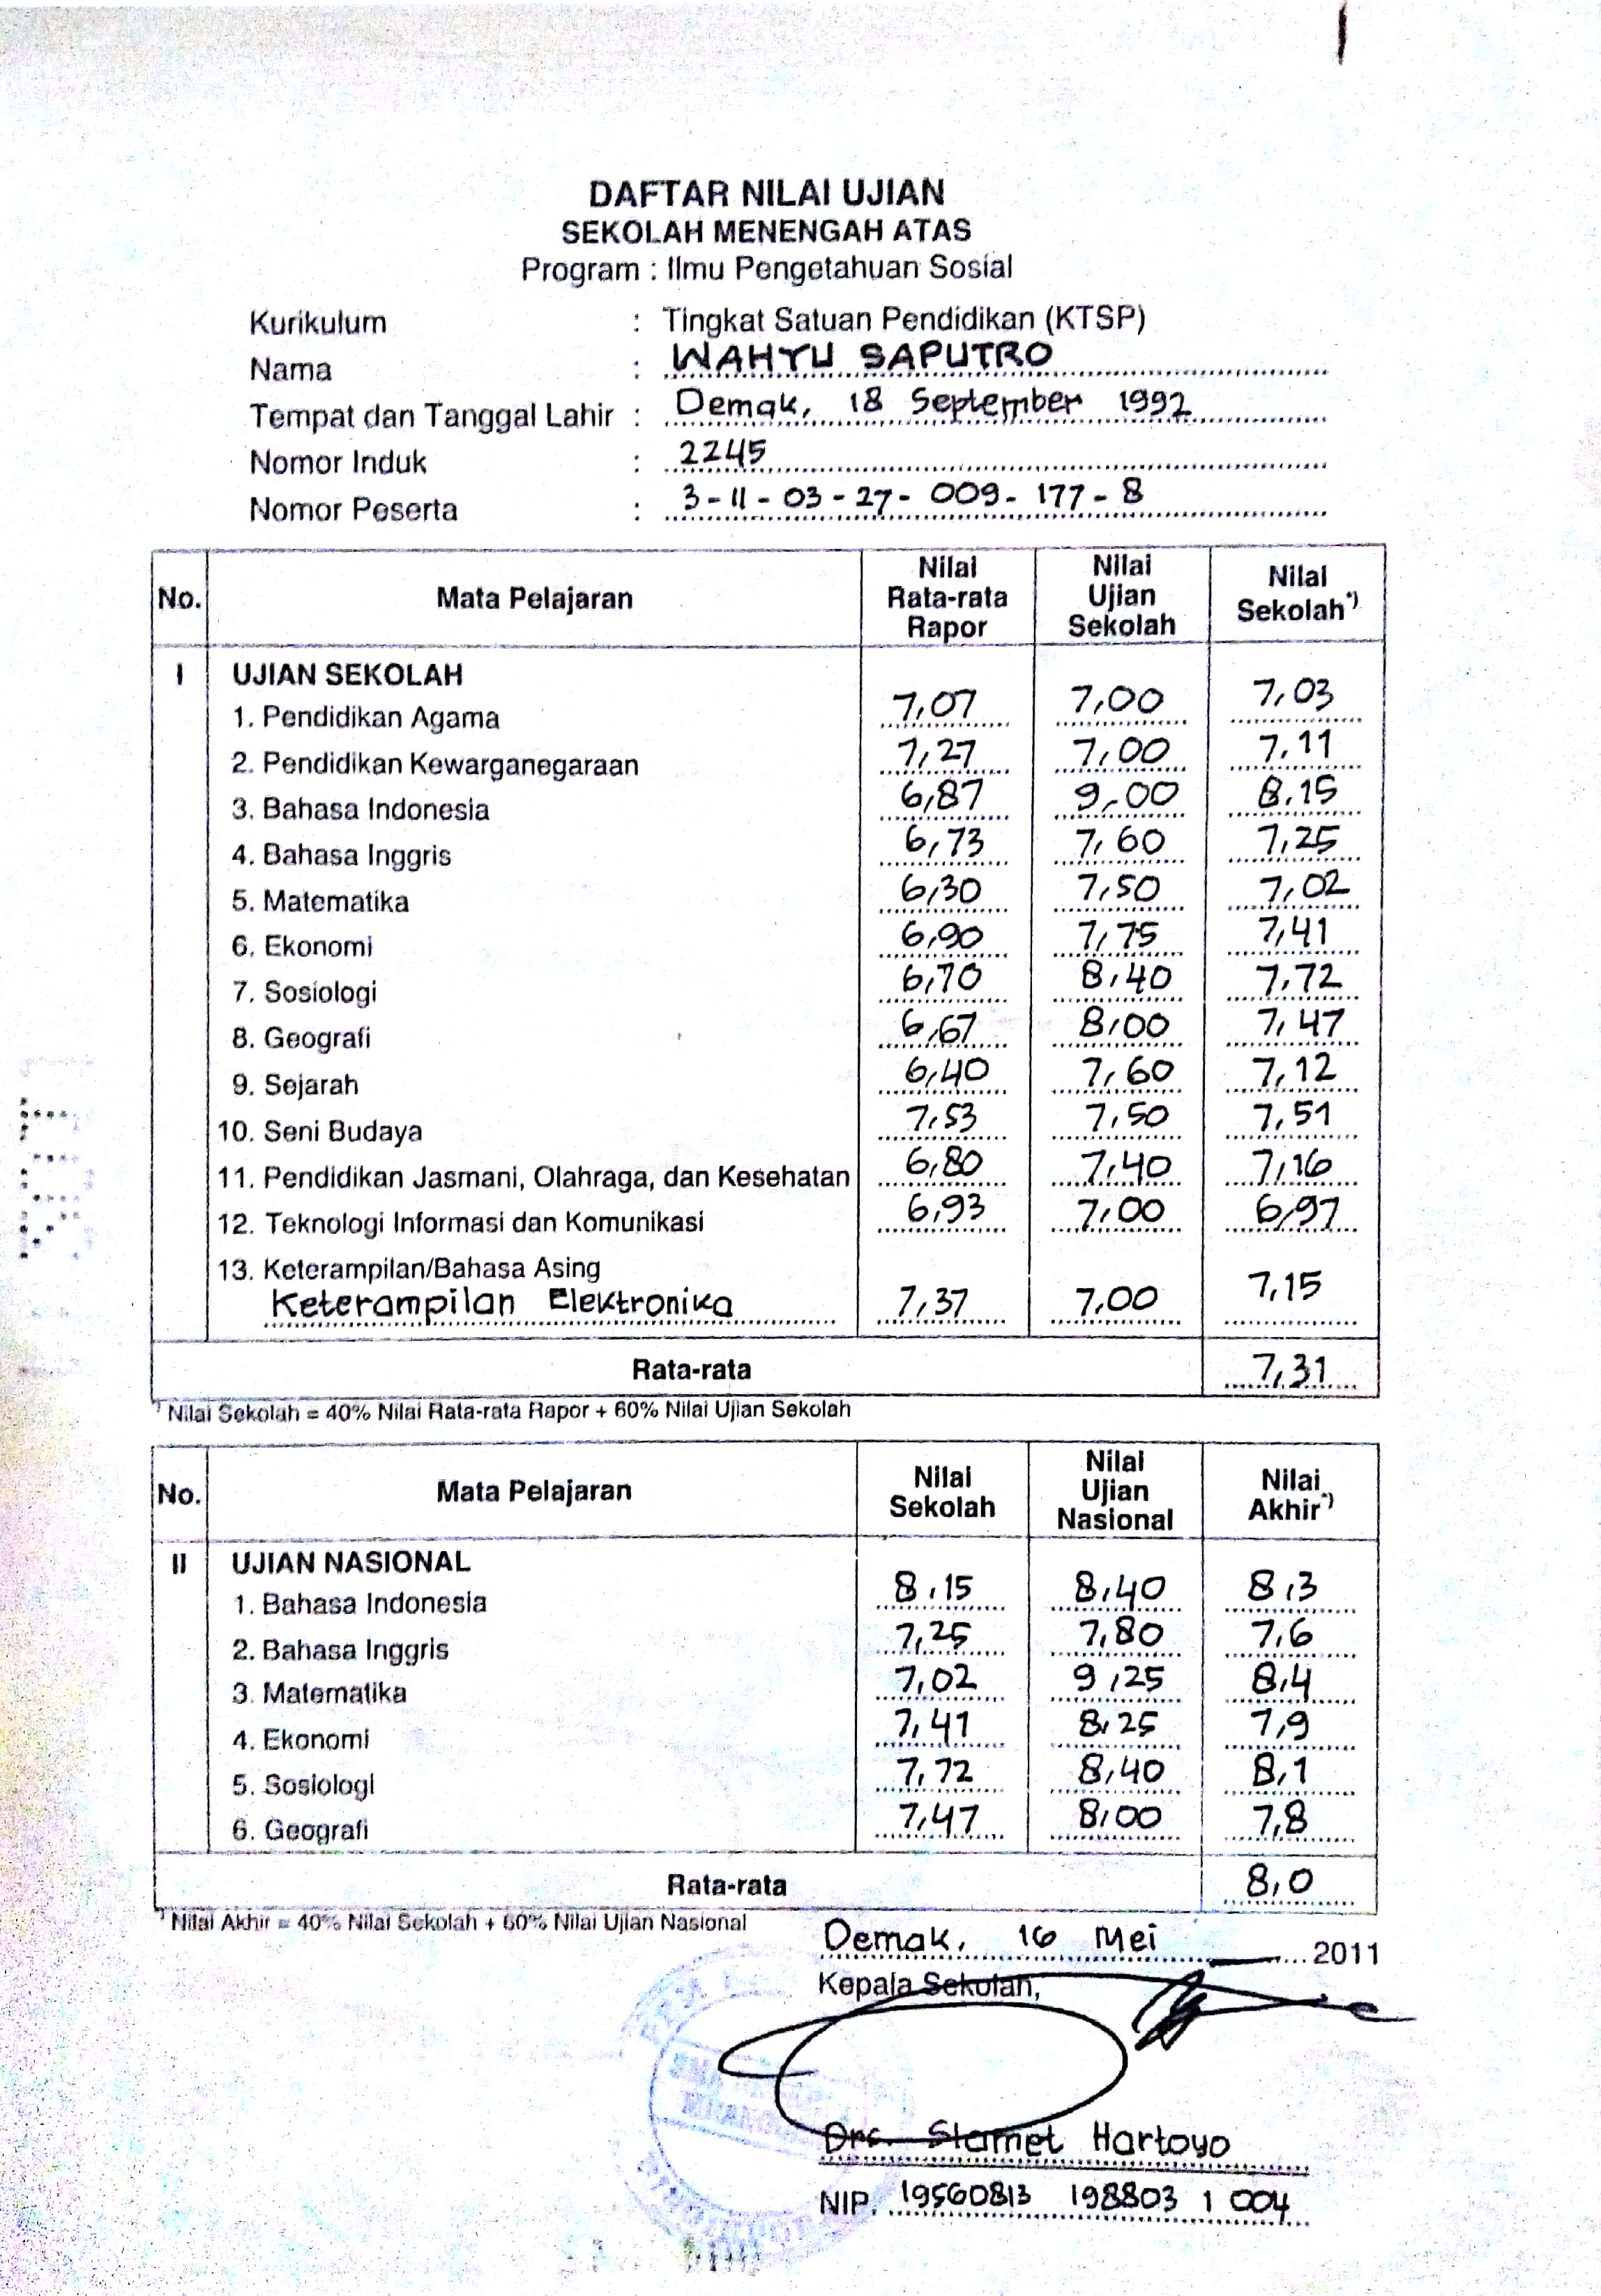 DAFTAR NILAI UJIAN
SEKOLAH MENENGAH ATAS
Program : Ilmu Pengetahuan Sosial
Kurikulum : Tingkat Satuan Pendidikan (KTSP)
Nama : WAHYU SAPUTRO
Tempat dan Tanggal Lahir : Demak, 18 September 1992
Nomor Induk : 2245
Nomor Peserta : 3-11-03-27-009-177-8
No. Mata Pelajaran Nilai Rata-rata Rapor Nilai Ujian Sekolah Nilai Sekolah*)
I UJIAN SEKOLAH
1. Pendidikan Agama 7,07 7,00 7,03
2. Pendidikan Kewarganegaraan 7,27 7,00 7,11
3. Bahasa Indonesia 6,87 9,00 8,15
4. Bahasa Inggris 6,73 7,60 7,25
5. Matematika 6,30 7,50 7,02
6. Ekonomi 6,90 7,75 7,41
7. Sosiologi 6,70 8,40 7,72
8. Geografi 6,67 8,00 7,47
9. Sejarah 6,40 7,60 7,12
10. Seni Budaya 7,53 7,50 7,51
11. Pendidikan Jasmani, Olahraga, dan Kesehatan 6,80 7,40 7,16
12. Teknologi Informasi dan Komunikasi 6,93 7,00 6,97
13. Keterampilan/Bahasa Asing
Keterampilan Elektronika 7,37 7,00 7,15
Rata-rata 7,31
*) Nilai Sekolah = 40% Nilai Rata-rata Rapor + 60% Nilai Ujian Sekolah
No. Mata Pelajaran Nilai Sekolah Nilai Ujian Nasional Nilai Akhir*)
II UJIAN NASIONAL
1. Bahasa Indonesia 8,15 8,40 8,3
2. Bahasa Inggris 7,25 7,80 7,6
3. Matematika 7,02 9,25 8,4
4. Ekonomi 7,41 8,25 7,9
5. Sosiologi 7,72 8,40 8,1
6. Geografi 7,47 8,00 7,8
Rata-rata 8,0
*) Nilai Akhir = 40% Nilai Sekolah + 60% Nilai Ujian Nasional
Demak, 16 Mei 2011
Kepala Sekolah,
Drs. Slamet Hartoyo
NIP. 19560813 198803 1 004